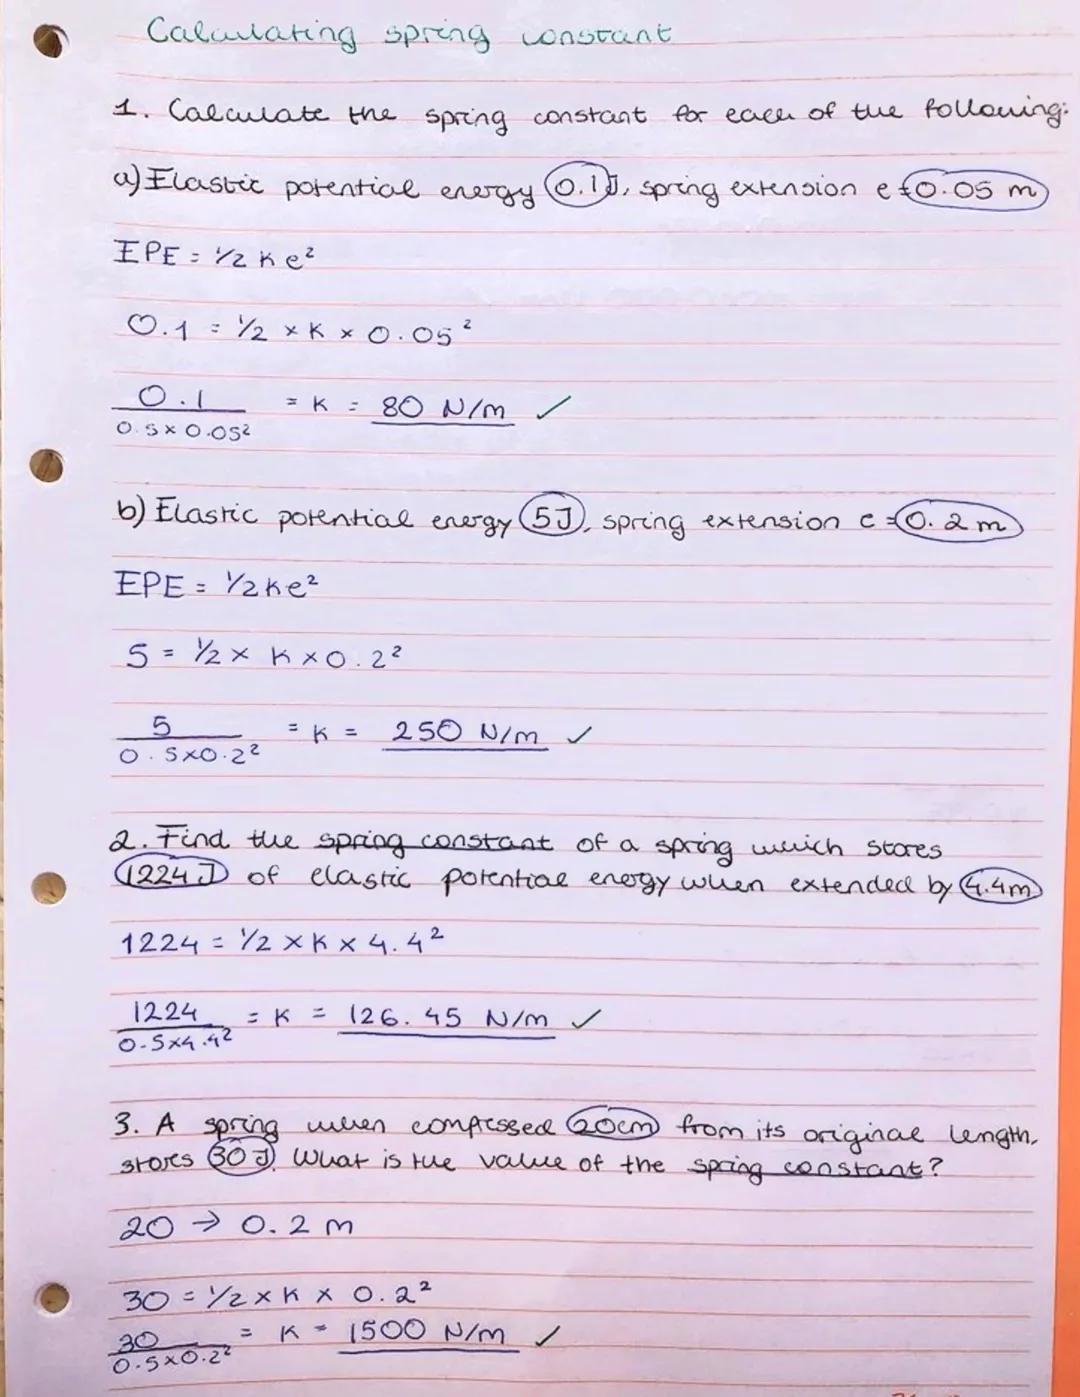 Calculating spring constant
1. Calculate the spring constant for each of the following:
a) Elastic potential energy 0.1J, spring extension e = 0.05 m
EPE = 1/2 k e²
0.1 = 1/2 × k × 0.05²
0.1 = k = 80 N/m ✓
0.5 × 0.05²
b) Elastic potential energy 5J, spring extension e = 0.2 m
EPE = 1/2 k e²
5 = 1/2 × k × 0.2²
5 = k = 250 N/m ✓
0.5 × 0.2²
2. Find the spring constant of a spring which stores
1224 J of elastic potential energy when extended by 4.4m
1224 = 1/2 × k × 4.4²
1224 = k = 126.45 N/m ✓
0.5×4.4²
3. A spring when compressed 20cm from its original length,
stores 30 J. What is the value of the spring constant?
20 → 0.2 m
30 = 1/2 × k × 0.2²
30 = k = 1500 N/m ✓
0.5×0.2²